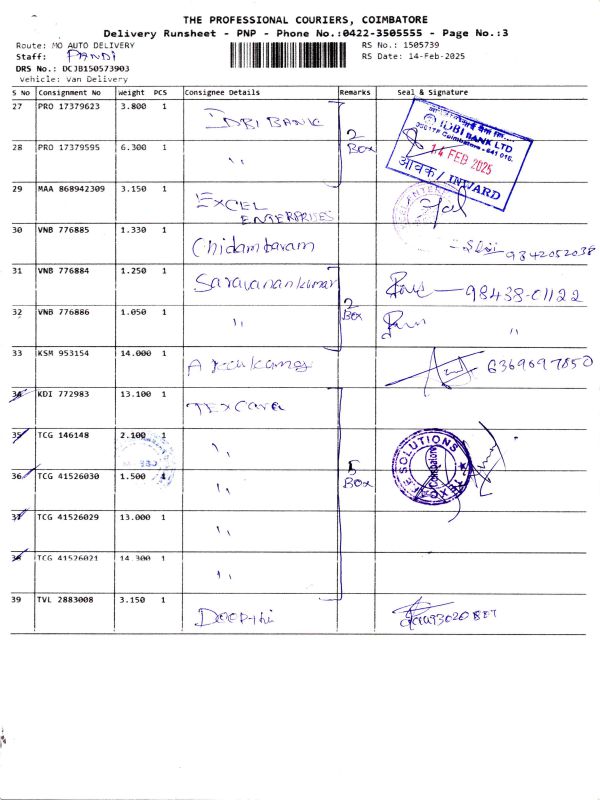 THE PROFESSIONAL COURIERS, COIMBATORE
Delivery Runsheet - PNP - Phone No.:0422-3505555 - Page No.:3
Route: MO AUTO DELIVERY
RS No.: 1505739
Staff: PANDI
RS Date: 14-Feb-2025
DRS No.: DCJB150573903
Vehicle: Van Delivery
S No Consignment No Weight PCS Consignee Details Remarks Seal & Signature
27 PRO 17379623 3.800 1 IDBI BANK
2 Box
IDBI BANK LTD
Coimbatore - 641 016.
14 FEB 2025
आवक / INWARD
28 PRO 17379595 6.300 1 ''
29 MAA 868942309 3.150 1 EXCEL ENTERPRISES
30 VNB 776885 1.330 1 Chidambaram 9842052038
31 VNB 776884 1.250 1 Saravanankumar 98438-01122
2 Box
32 VNB 776886 1.050 1 '' ''
33 KSM 953154 14.000 1 6369697850
34 KDI 772983 13.100 1 TEXCARE
35 TCG 146148 2.100 1 ''
5 Box
SOLUTIONS
Coimbatore
36 TCG 41526030 1.500 1 ''
37 TCG 41526029 13.000 1 ''
38 TCG 41526021 14.300 1 ''
39 TVL 2883008 3.150 1 Deepthi